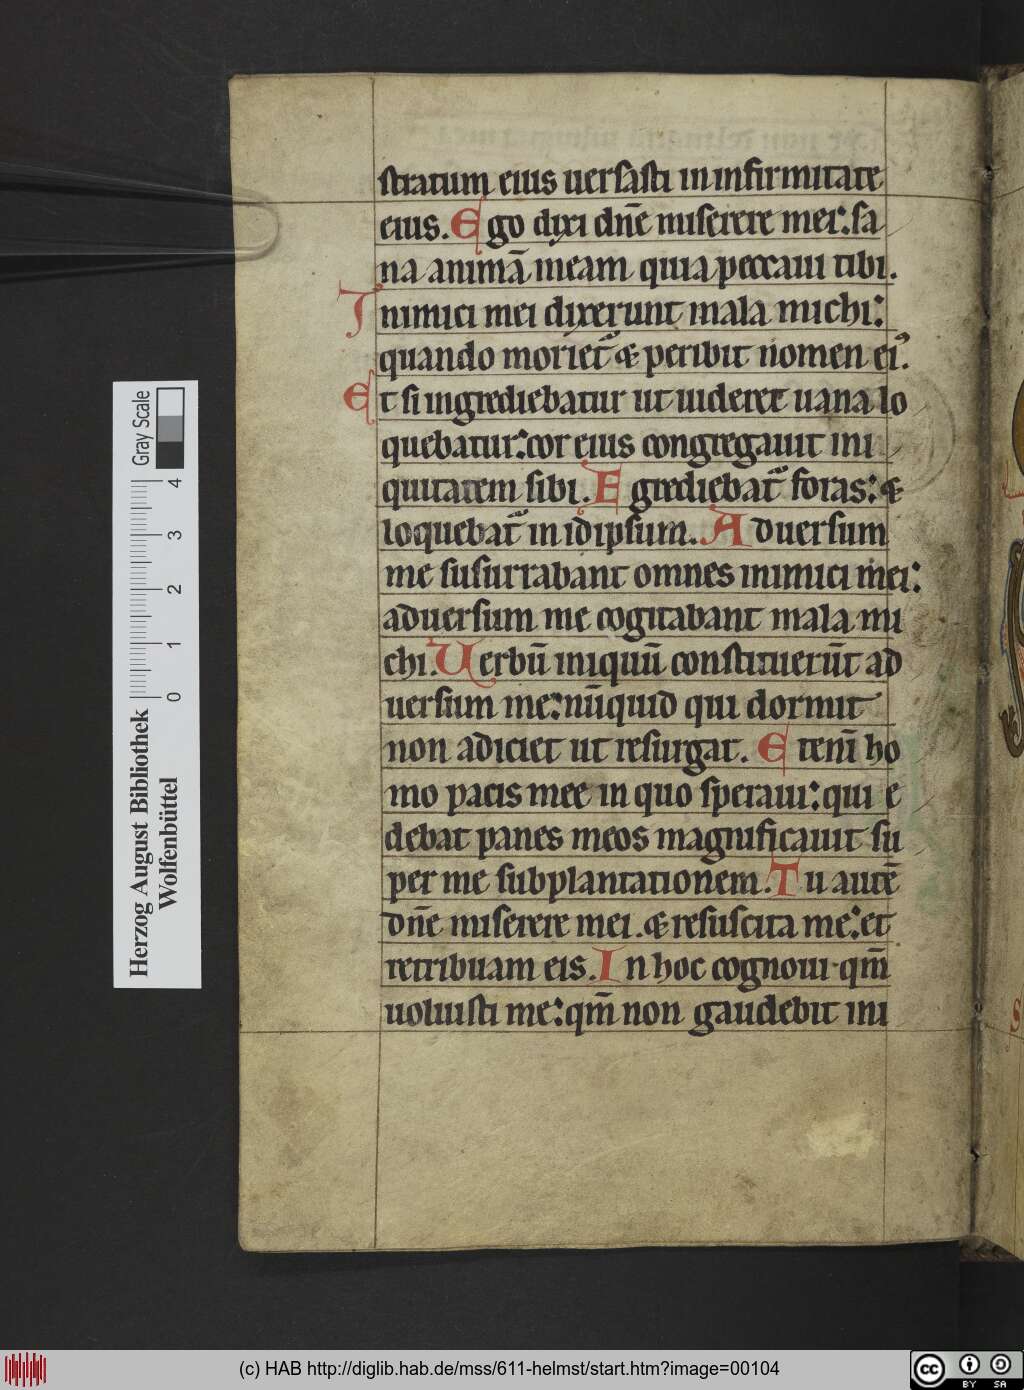 stratum eius uersasti in infirmitate
eius. Ego dixi dn̄e miserere mei: sa
na animā meam quia peccaui tibi.
Inimici mei dixerunt mala michi:
quando moriet᷑ & peribit nomen eiꝰ.
Et si ingrediebatur ut uideret uana lo
quebatur: cor eius congregauit ini
quitatem sibi. Egrediebat᷑ foras: &
loquebat᷑ in idipsum. Aduersum
me susurrabant omnes inimici mei:
aduersum me cogitabant mala mi
chi. Uerbū iniquū constituerūt ad
uersum me: nūquid qui dormit
non adiciet ut resurgat. Etenī ho
mo pacis mee in quo speraui: qui e
debat panes meos magnificauit su
per me subplantationem. Tu autē
dn̄e miserere mei. & resuscita me: et
retribuam eis. In hoc cognoui qm̄
uoluisti me: qm̄ non gaudebit ini
Herzog August Bibliothek
Wolfenbüttel
Gray Scale
0 1 2 3 4
(c) HAB http://diglib.hab.de/mss/611-helmst/start.htm?image=00104
cc BY SA